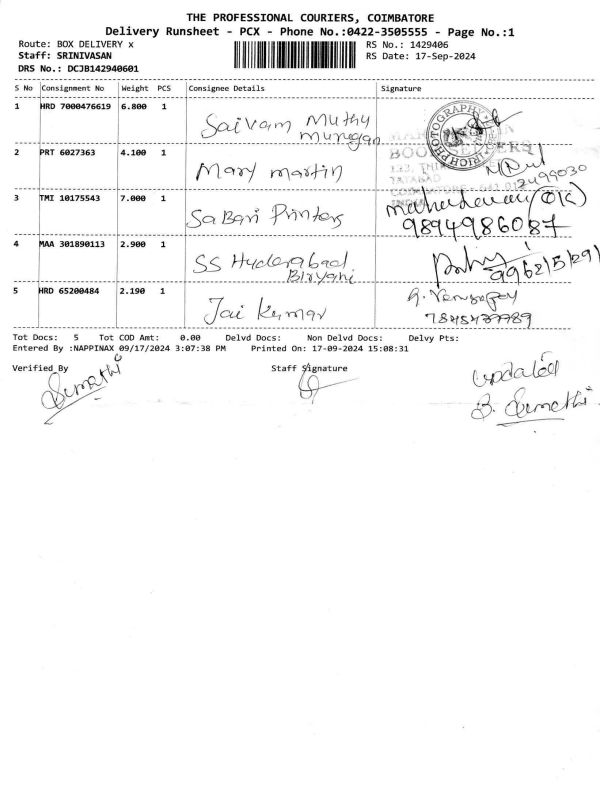 THE PROFESSIONAL COURIERS, COIMBATORE
Delivery Runsheet - PCX - Phone No.:0422-3505555 - Page No.:1
Route: BOX DELIVERY x RS No.: 1429406
Staff: SRINIVASAN RS Date: 17-Sep-2024
DRS No.: DCJB142940601
S No Consignment No Weight PCS Consignee Details Signature
1 HRD 7000476619 6.800 1 Saivam Muthu
murugan
PHOTOGRAPHY
BOOKSELLERS
2 PRT 6027363 4.100 1 Mary martin
3 TMI 10175543 7.000 1 SaBari Printers mahadevan (OK)
9894986087
4 MAA 301890113 2.900 1 SS Hyderabad
Biryani
9962151291
5 HRD 65200484 2.190 1 Jai Kumar
Tot Docs: 5 Tot COD Amt: 0.00 Delvd Docs: Non Delvd Docs: Delvy Pts:
Entered By :NAPPINAX 09/17/2024 3:07:38 PM Printed On: 17-09-2024 15:08:31
Verified By Staff Signature
Sumathi
updated
B. Sumathi